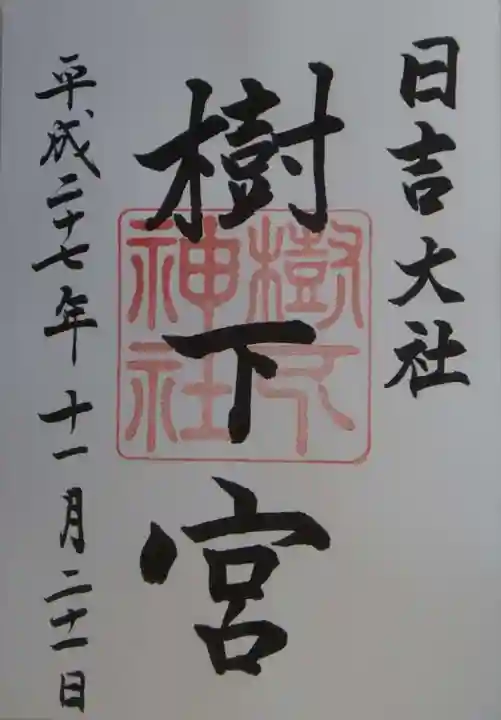 日吉大社
樹下宮
樹下
神社
平成二十七年十一月二十一日